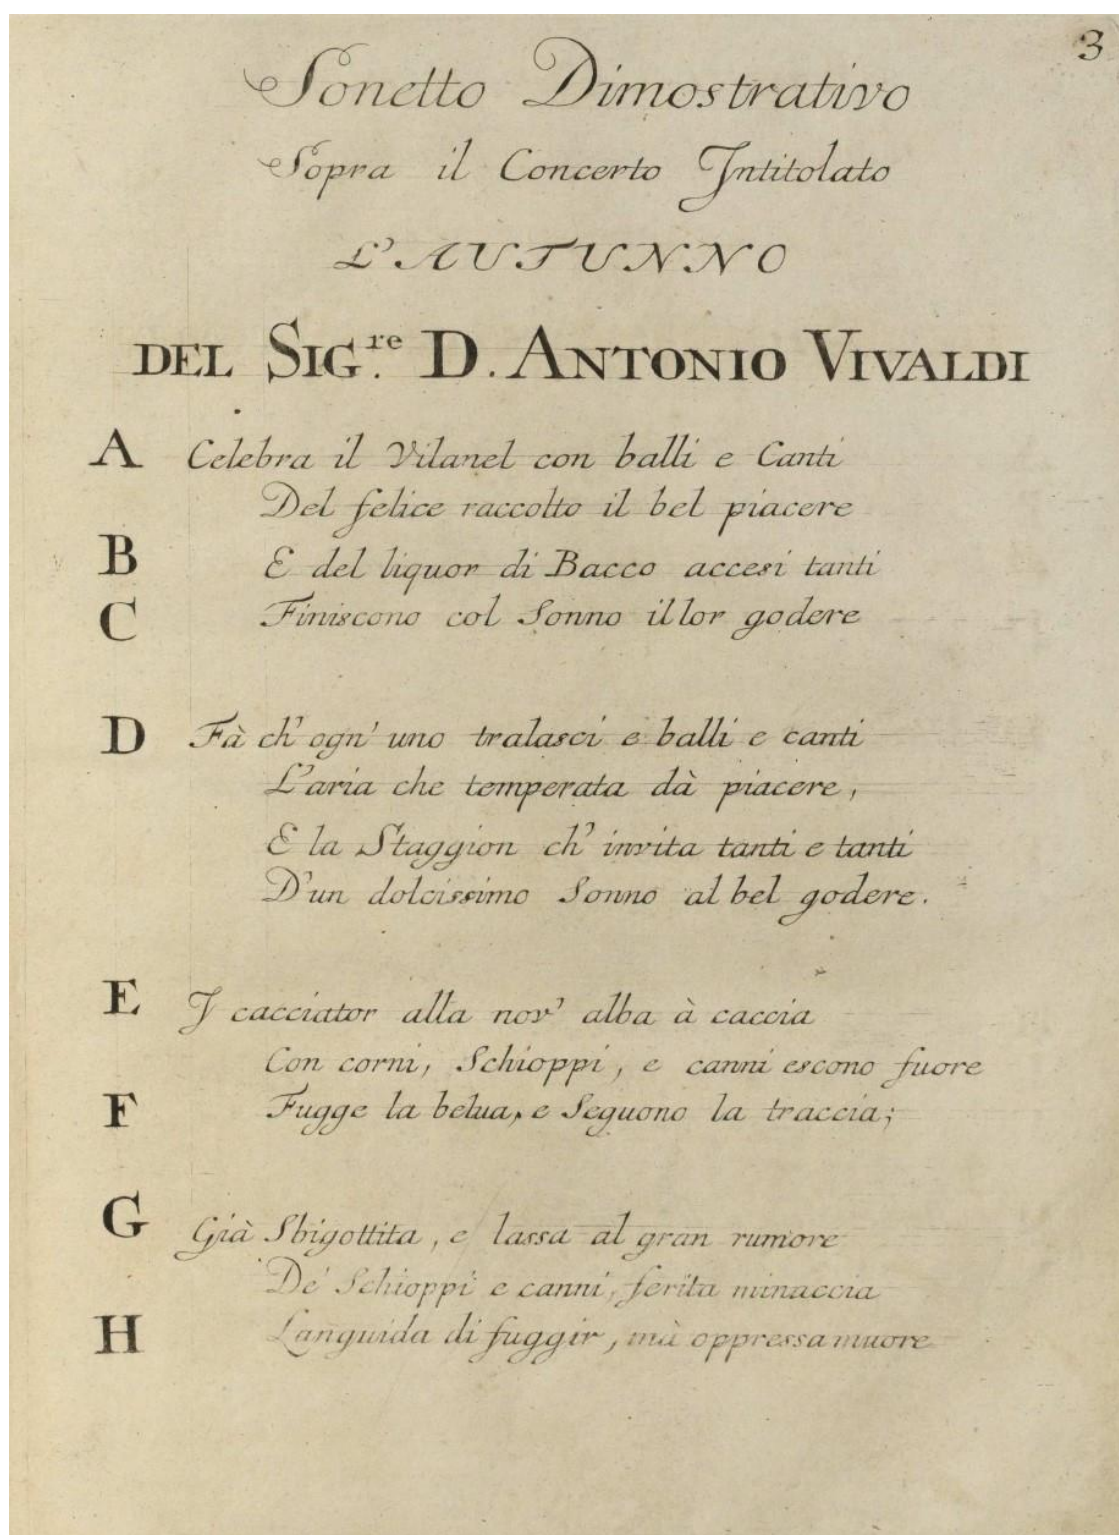 3
Sonetto Dimostrativo
Sopra il Concerto Intitolato
L'AUTUNNO
DEL SIG.re D. ANTONIO VIVALDI
A Celebra il Vilanel con balli e Canti
Del felice raccolto il bel piacere
B E del liquor di Bacco accesi tanti
C Finiscono col Sonno il lor godere
D Fà ch' ogn' uno tralasci e balli e canti
L'aria che temperata dà piacere,
E la Staggion ch' invita tanti e tanti
D'un dolcissimo Sonno al bel godere.
E I cacciator alla nov' alba à caccia
Con corni, Schioppi, e canni escono fuore
F Fugge la belua, e Seguono la traccia;
G Già Sbigottita, e lassa al gran rumore
De' Schioppi e canni, ferita minaccia
H Languida di fuggir, mà oppressa muore